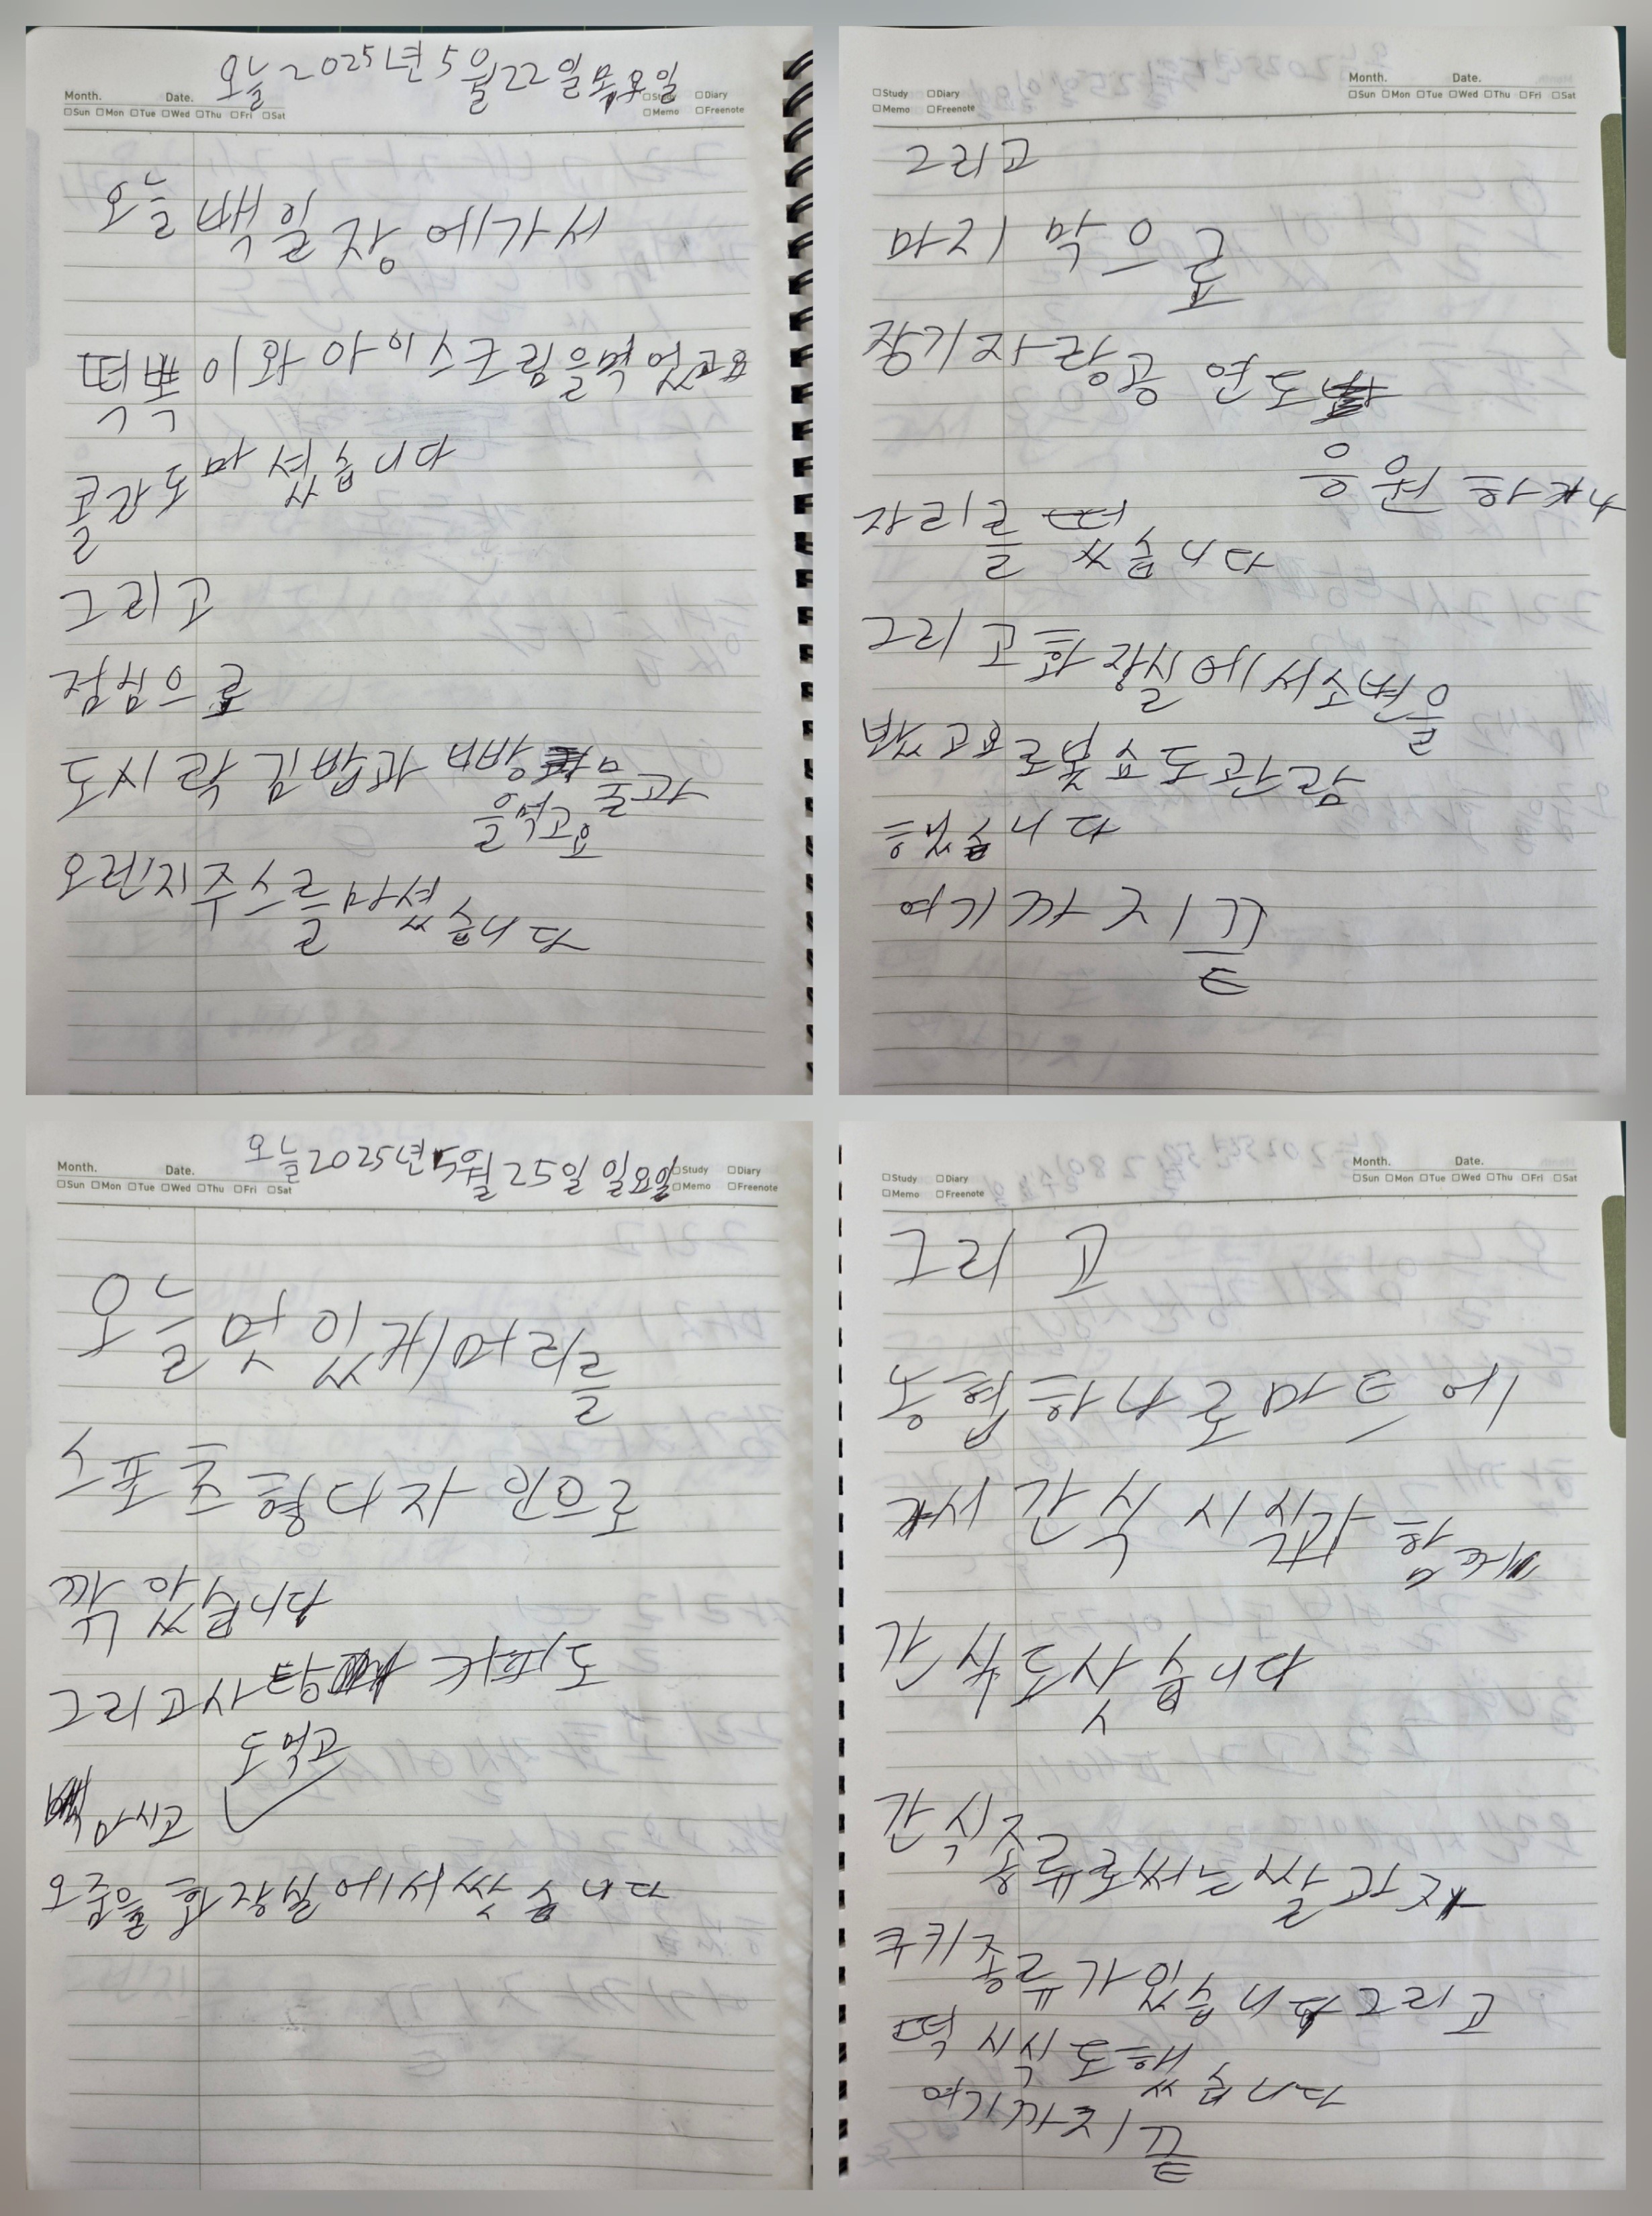 오늘 2025년 5월 22일 목요일
Month. Date.
Sun Mon Tue Wed Thu Fri Sat
Study Diary
Memo Freenote
오늘 백일장에가서
떡뽁이와 아이스크림을먹었고요
콜라도마셨습니다
그리고
점심으로
도시락 김밥과 물과
을먹고요
오렌지주스를마셨습니다
Study Diary
Memo Freenote
Month. Date.
Sun Mon Tue Wed Thu Fri Sat
그리고
마지막으로
장기자랑공연도
응원하
자리를떴습니다
그리고화장실에서소변을
봤고요로봇쇼도관람
했습니다
여기까지끝
오늘2025년5월25일일요일
Month. Date.
Sun Mon Tue Wed Thu Fri Sat
Study Diary
Memo Freenote
오늘멋있게머리를
스포츠형디자인으로
깎았습니다
그리고사탕 커피도
도먹고
마시고
오줌을화장실에서쌋습니다
Study Diary
Memo Freenote
Month. Date.
Sun Mon Tue Wed Thu Fri Sat
그리고
농협하나로마트에
가서간식시식과함께
간식도삿습니다
간식종류로써는쌀과자
쿠키종류가있습니다그리고
떡시식도했습니다
여기까지끝